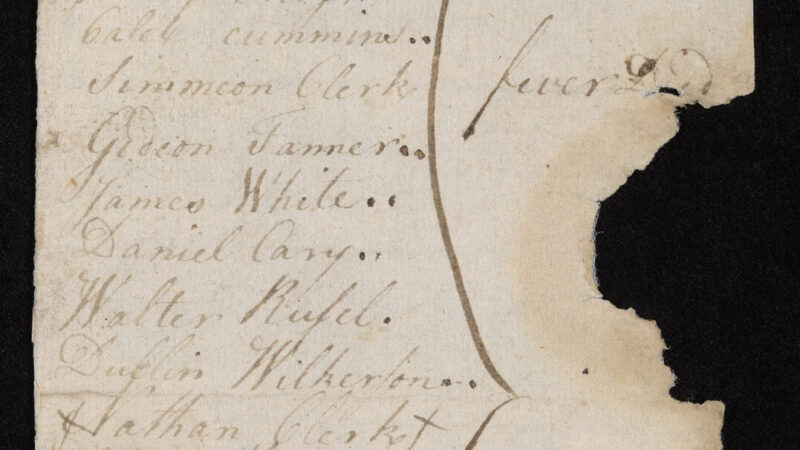 Caleb cummins..
Simmeon Clerk
fever
Gideon Tanner..
James White..
Daniel Cary..
Walter Ruſel.
Dublin Wilkerſon...
Nathan Clerk